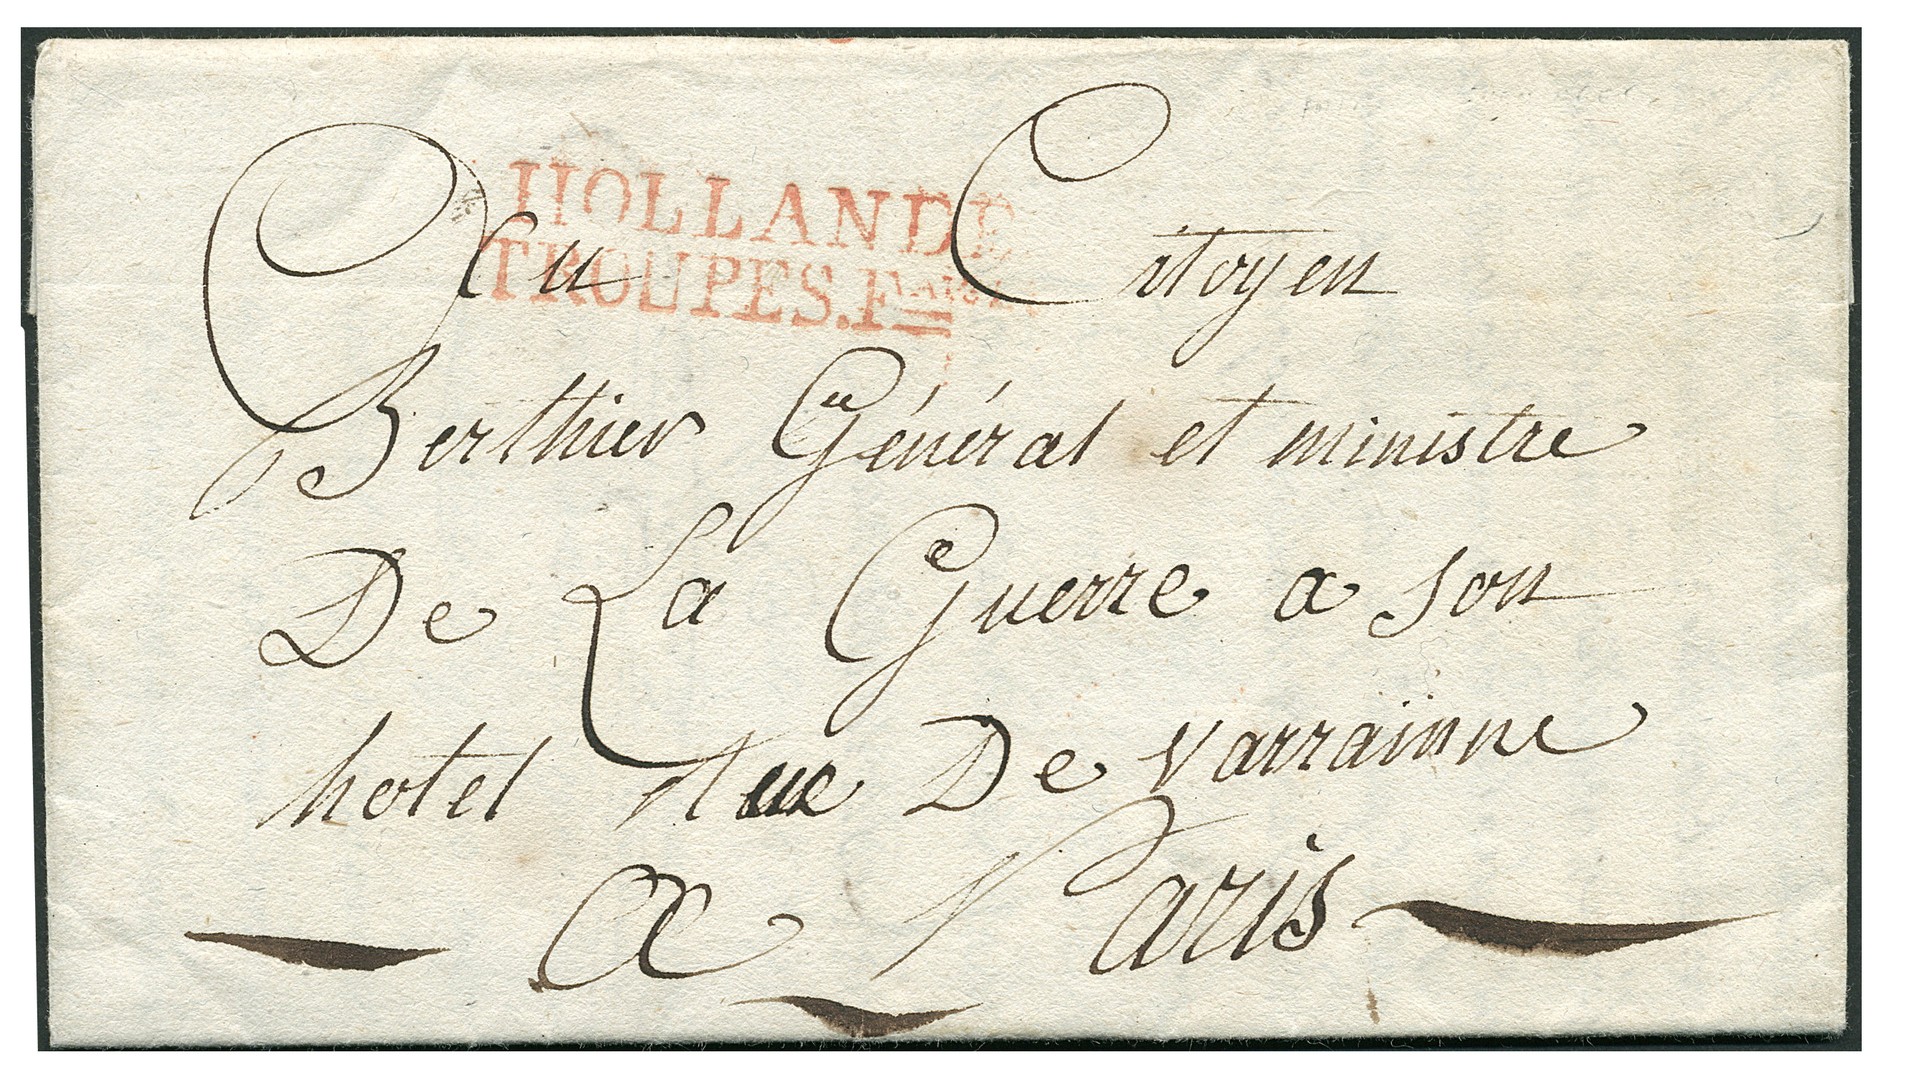 HOLLANDE
TROUPES.F
Au Citoyen
Berthier Général et ministre
De La Guerre a son
hotel Rue De Varrainne
a Paris